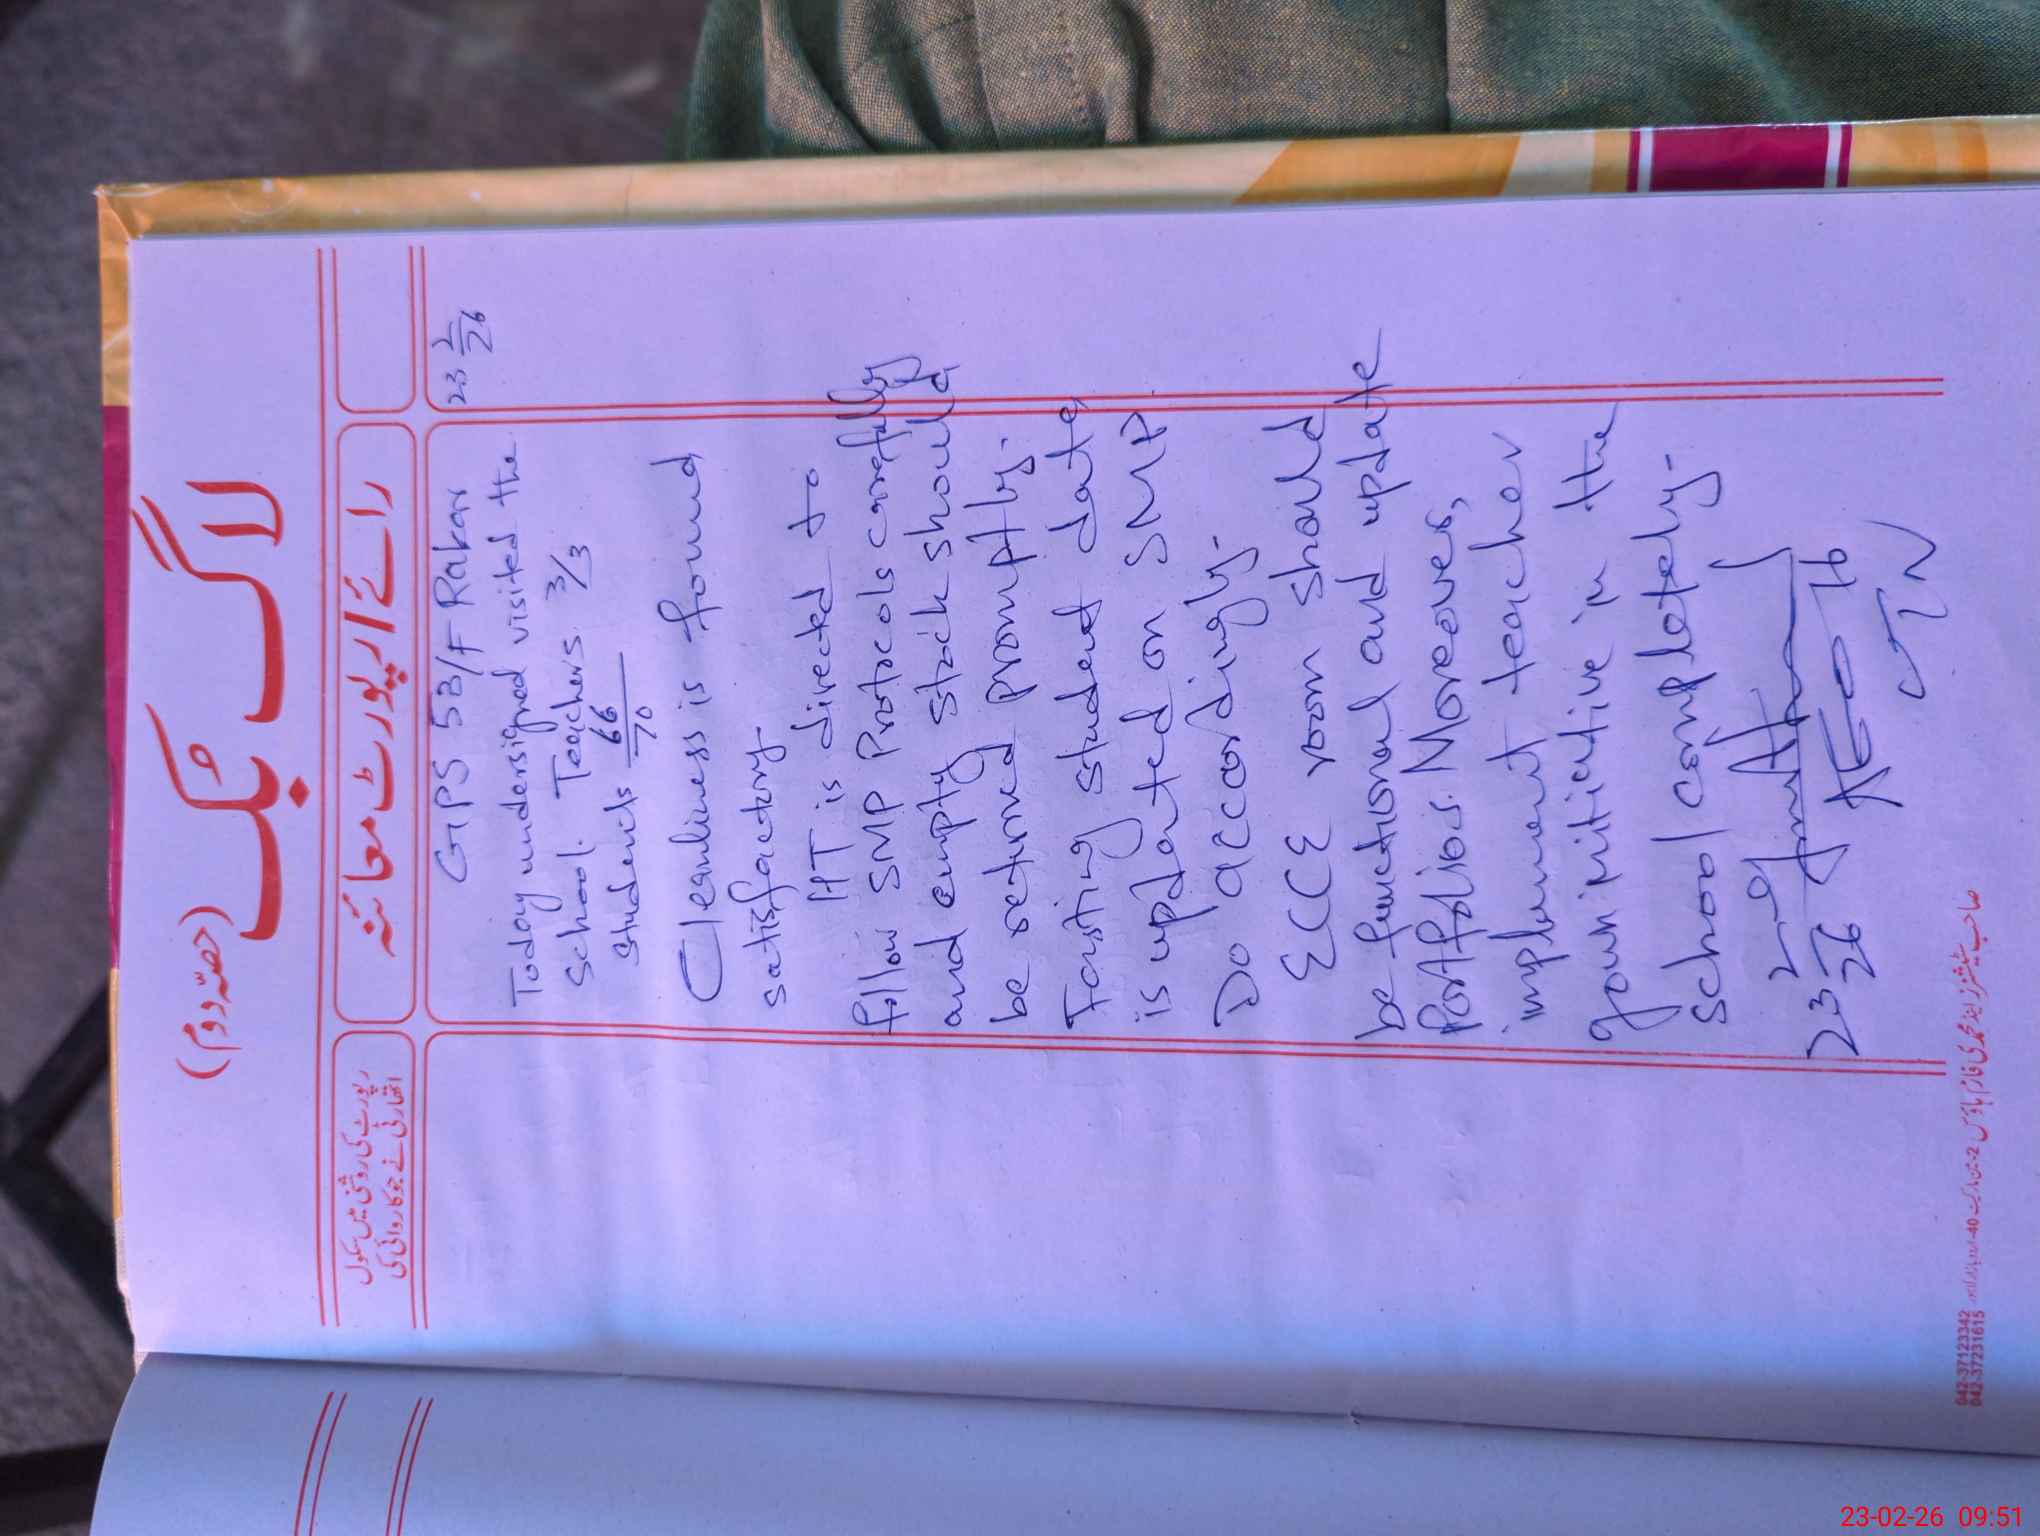 لاگ بُک (حصّہ دوم)
رائے / رپورٹ معائنہ
رپورٹ کی روشنی میں سکول
اتھارٹی نے جو کاروائی کی
GPS 53/F Rakar
23 2/26
Today undersigned visited the
school. Teachers 3/3
students 66/70
Cleanliness is found
satisfactory
HT is directed to
follow SMP Protocols carefully
and empty stock should
be returned promptly.
Fasting student date
is updated on SMP.
Do accordingly.
ECCE room should
be functional and update
Portfolios. Moreover,
implement teacher
initiative in the
school completely.
23 2/26
AEO 16
042-37123342
042-37231615
23-02-26 09:51